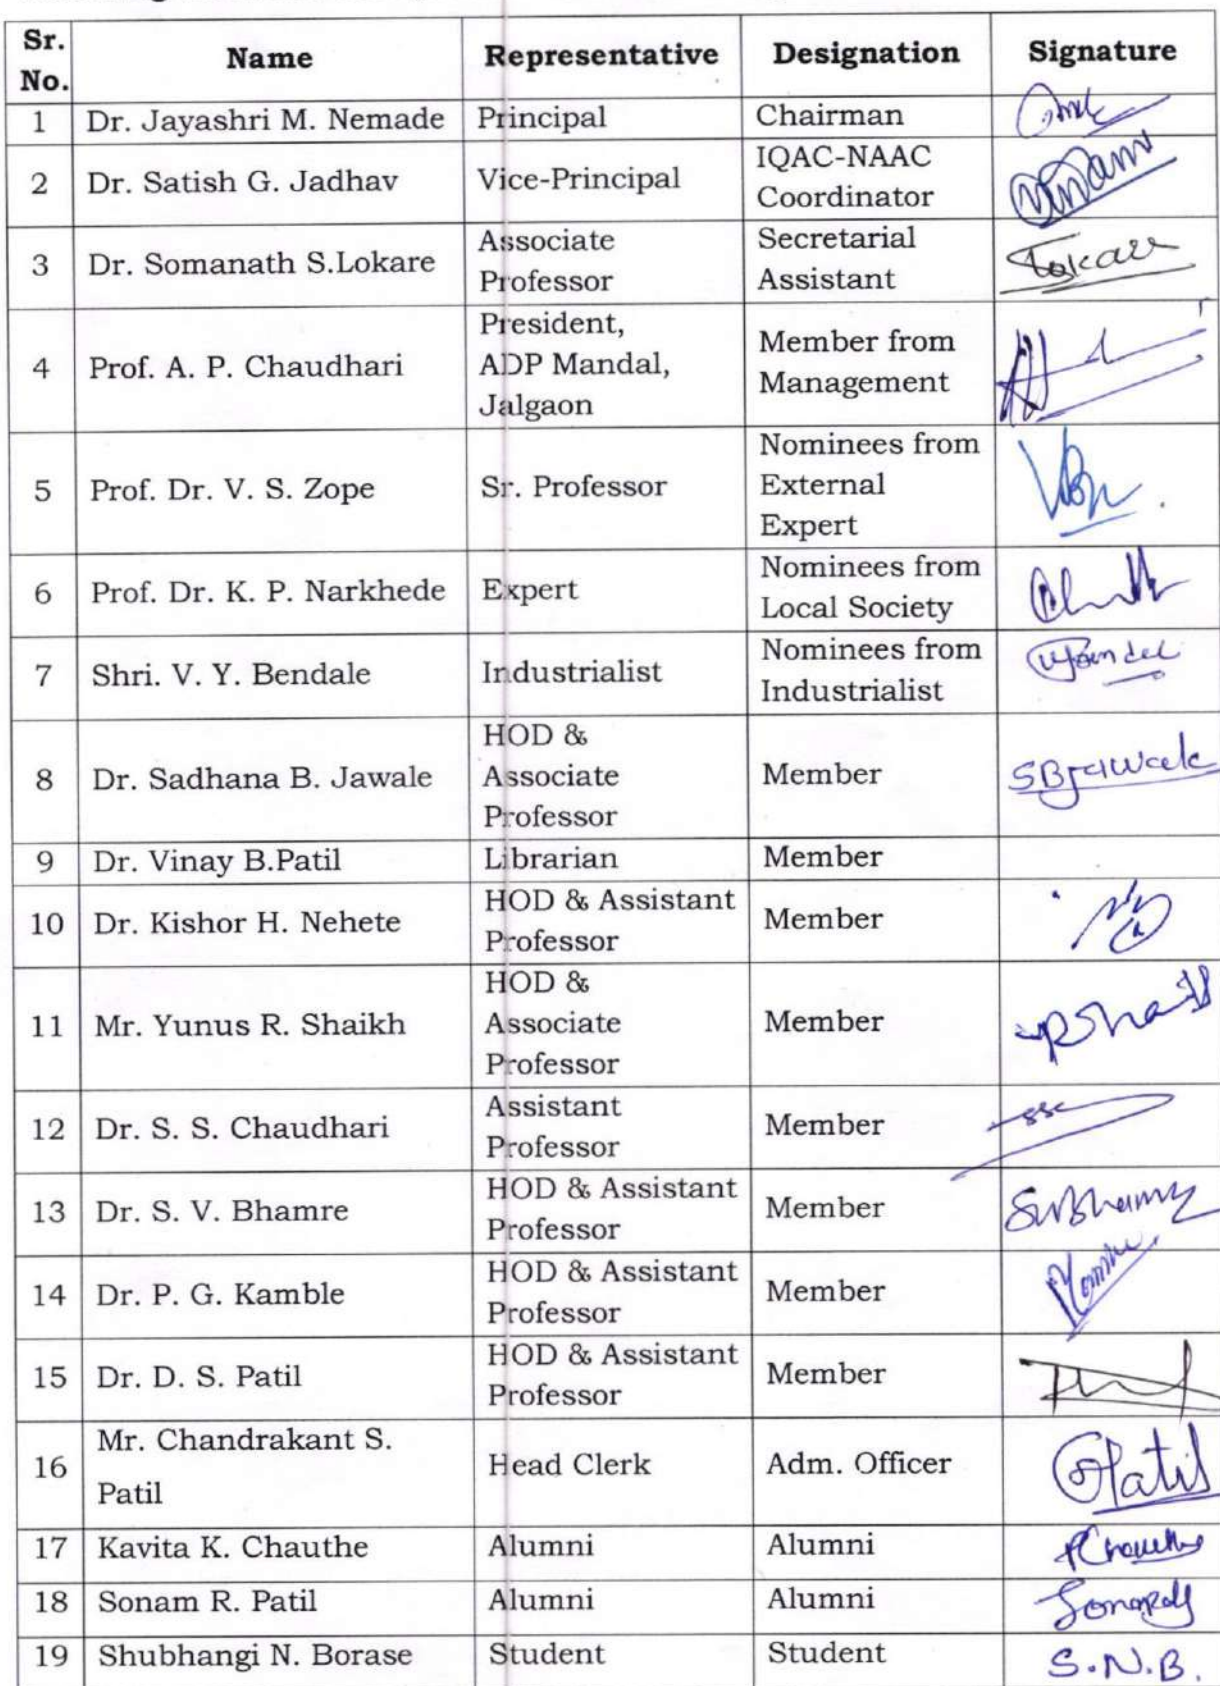 Sr. No. Name Representative Designation Signature
1 Dr. Jayashri M. Nemade Principal Chairman
2 Dr. Satish G. Jadhav Vice-Principal IQAC-NAAC Coordinator
3 Dr. Somanath S.Lokare Associate Professor Secretarial Assistant
4 Prof. A. P. Chaudhari President, ADP Mandal, Jalgaon Member from Management
5 Prof. Dr. V. S. Zope Sr. Professor Nominees from External Expert
6 Prof. Dr. K. P. Narkhede Expert Nominees from Local Society
7 Shri. V. Y. Bendale Industrialist Nominees from Industrialist
8 Dr. Sadhana B. Jawale HOD & Associate Professor Member SBJawale
9 Dr. Vinay B.Patil Librarian Member
10 Dr. Kishor H. Nehete HOD & Assistant Professor Member
11 Mr. Yunus R. Shaikh HOD & Associate Professor Member
12 Dr. S. S. Chaudhari Assistant Professor Member ssc
13 Dr. S. V. Bhamre HOD & Assistant Professor Member
14 Dr. P. G. Kamble HOD & Assistant Professor Member
15 Dr. D. S. Patil HOD & Assistant Professor Member
16 Mr. Chandrakant S. Patil Head Clerk Adm. Officer
17 Kavita K. Chauthe Alumni Alumni
18 Sonam R. Patil Alumni Alumni
19 Shubhangi N. Borase Student Student S.N.B.